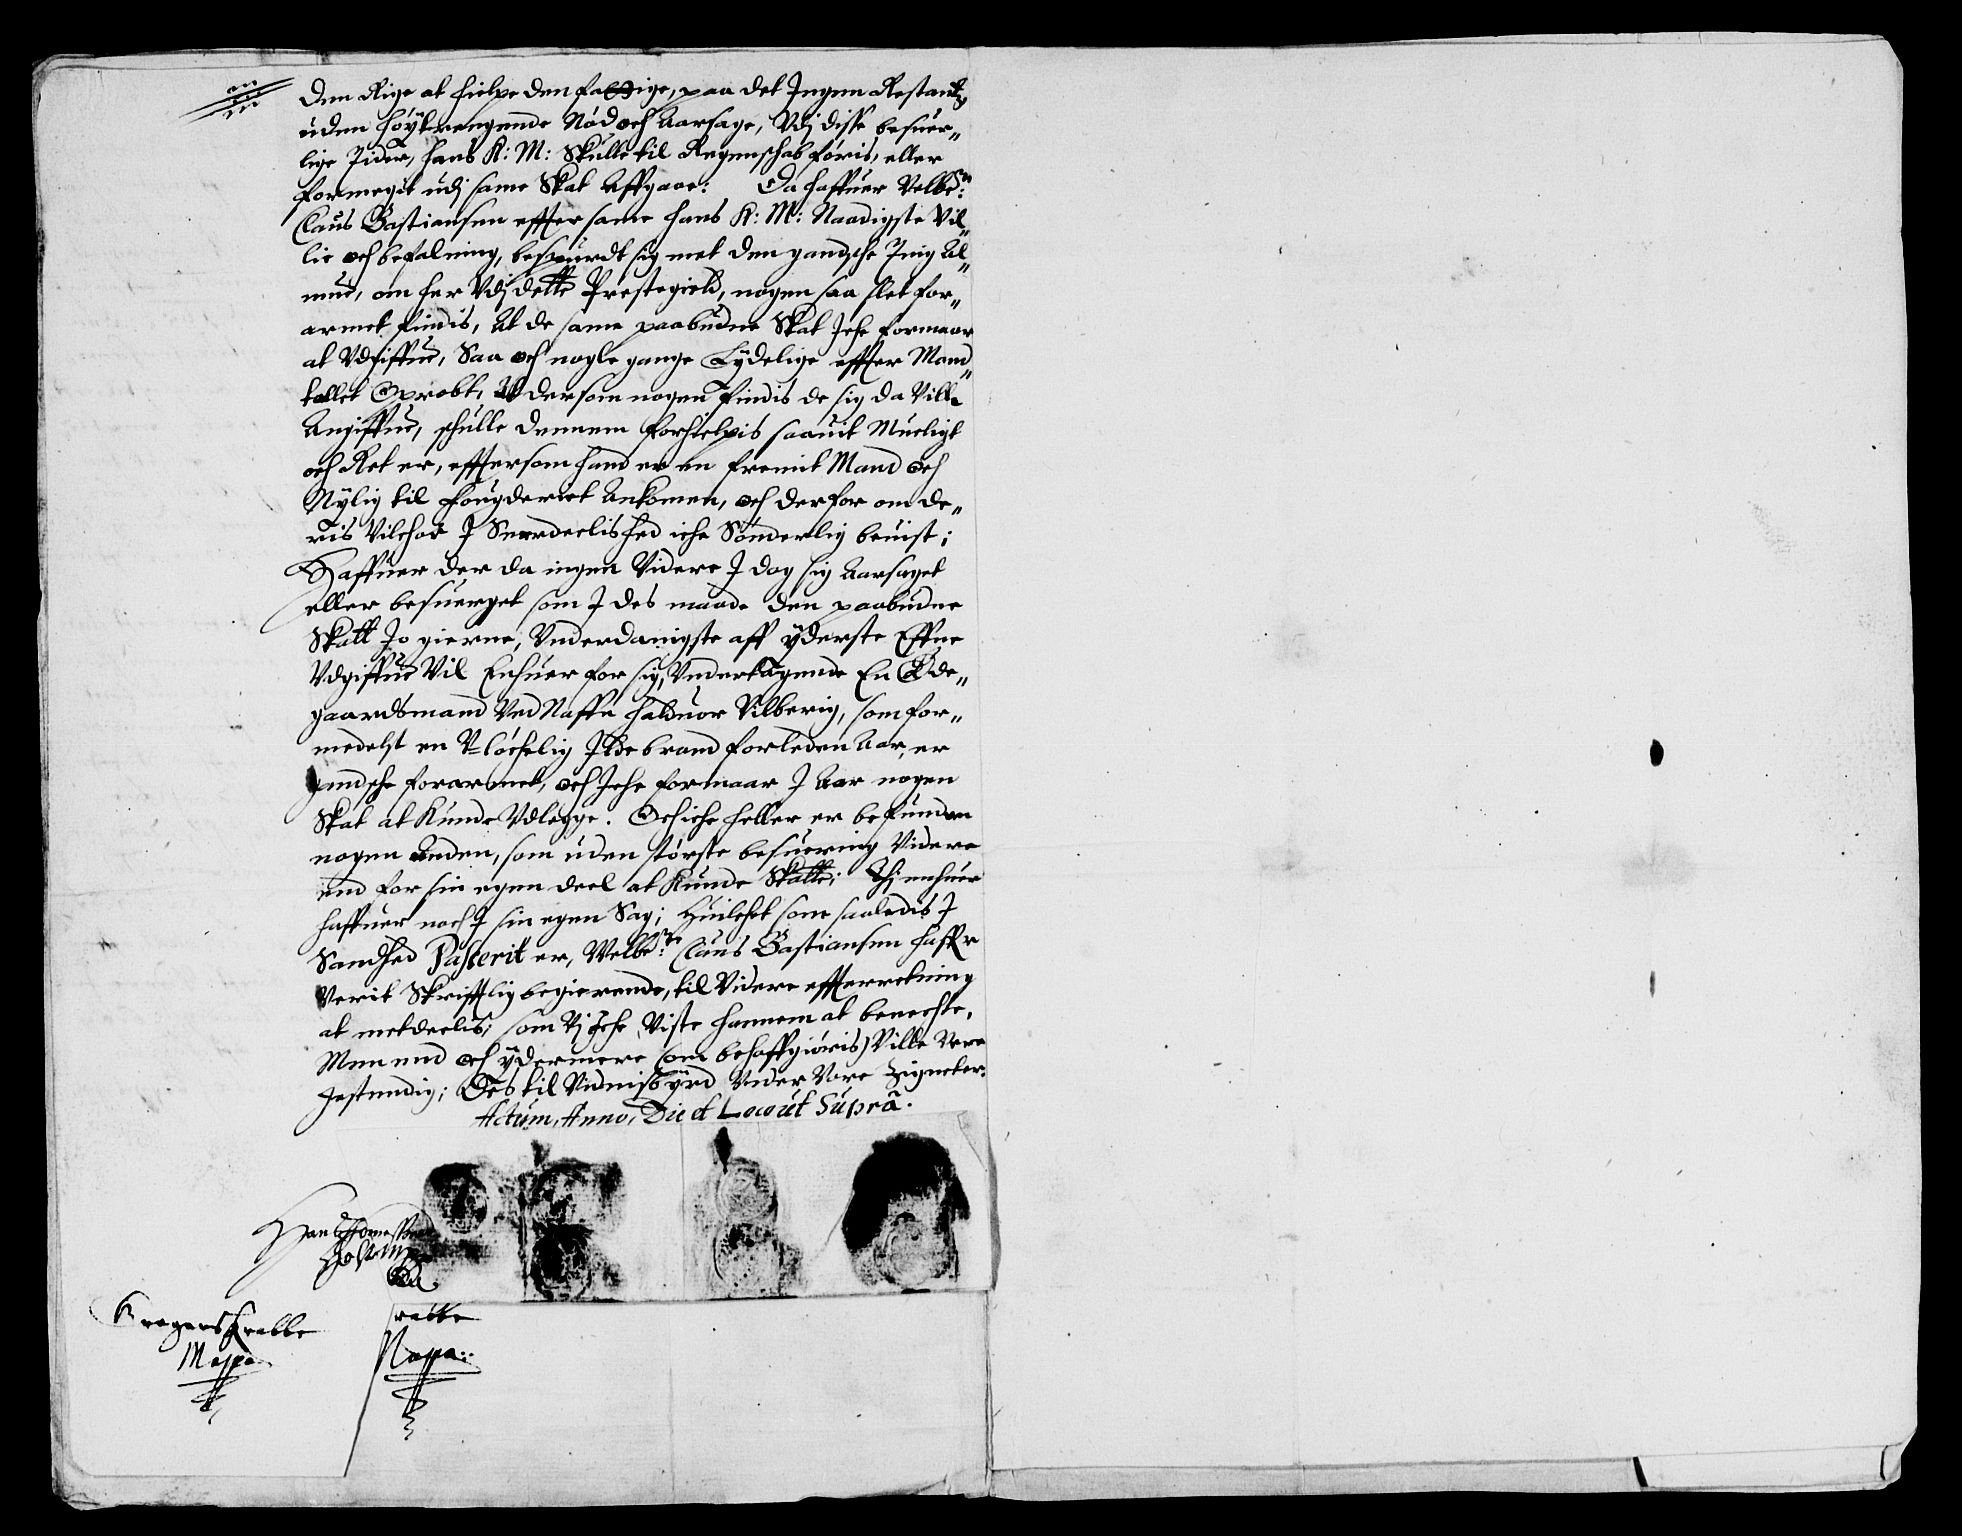 Den Rige at hielpe den fattige, paa det Ingen Restantz
uden høÿtrengende Nød och Aarsage, Vdj disse besuer„
lige Tider, hans K: M: Skulle til Regenschab føris, eller
formegit udj same Skat Affgaae: Da haffuer Velbe:
Claus Bastiansen effter same hans K: M: Naadigste Vil„
lie och befalning, bespurdt sig met den gandsche Menig Al„
mue, om her Vdj dette Prestegield, nogen saa slet for„
armet findis, At de same paabudne Skat Iche formaar
at Vdgiffue, Saa och nogle gange Lÿdelige effter Mand„
tallet Oprobt, At dersom nogen findis de sig da Ville
Angiffue, schulle dennem forhielpis saauit Mueligt
och Ret er, efftersom hand er en fremit Mand och
Nÿlig til fougderiet Ankomen, och derfor om de„
ris Vilchor I Serdeelished iche Sønderlig beuist;
Haffuer der da ingen Videre I dag sig Aarsaget
eller besuerget som I des maade den paabudne
Skatt Jo gierne, Vnderdanigste aff ÿderste Effne
Vdgiffue Vil Enhuer for sig, Vndertagende En Øde„
gaardsmand Ved Naffn Haluor Vilberig, som for„
medelst en V-løchelig Ildebrand forleden Aar, er
gandsche forarmet, och Iche formaar I Aar nogen
Skat at Kunde Vdlegge. Och iche heller er befunden
nogen Anden, som uden største besuering Videre
end for sin egen deel at Kunde Skatte; Thj enhuer
haffuer noch I sin egen Sag; Huilchet som saaledis I
Sandhed Passerit er, Welbe: Claus Bastiansen haffr
Verit Skrifftlig begierende, til Videre effterretning
at metdeelis; som Vj Iche Viste hannem at benechte,
Men end och ÿdermere (om behoff giøris) Ville Vere
gestendig; Des til Vidnisbÿrd Vnder Vore Zigneter.
Actum, Anno, Die et Loco ut Supra.
Hans
Kragers
Krabbe
Mappa
rabbe
Mappa: